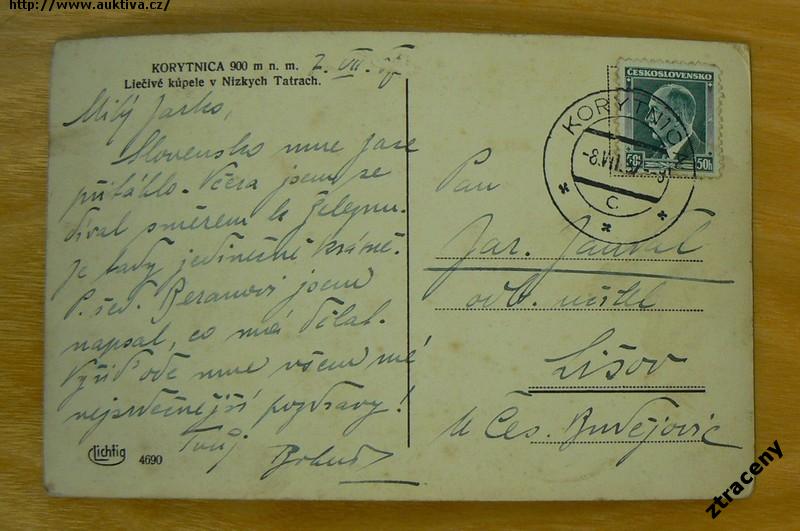 http://www.auktiva.cz/
KORYTNICA 900 m n. m.
Liečivé kúpele v Nízkych Tatrach.
7. VII.
Milý Jarko,
Slovensko mne zase
přitáhlo. Včera jsem se
díval směrem k
Je tady jedinečně krásně.
P. šéd. Beranovi jsem
napsal, co má dělat.
Vyřiď ode mne všem mé
nejsrdečnější pozdravy!
Tvůj
Bohuš
Lichtig
4690
ČESKOSLOVENSKO
50h
KORYTNICA
-8.VII.
C
Pan
Jar.
odb. učitel
Lišov
u Čes. Budějovic
ztraceny